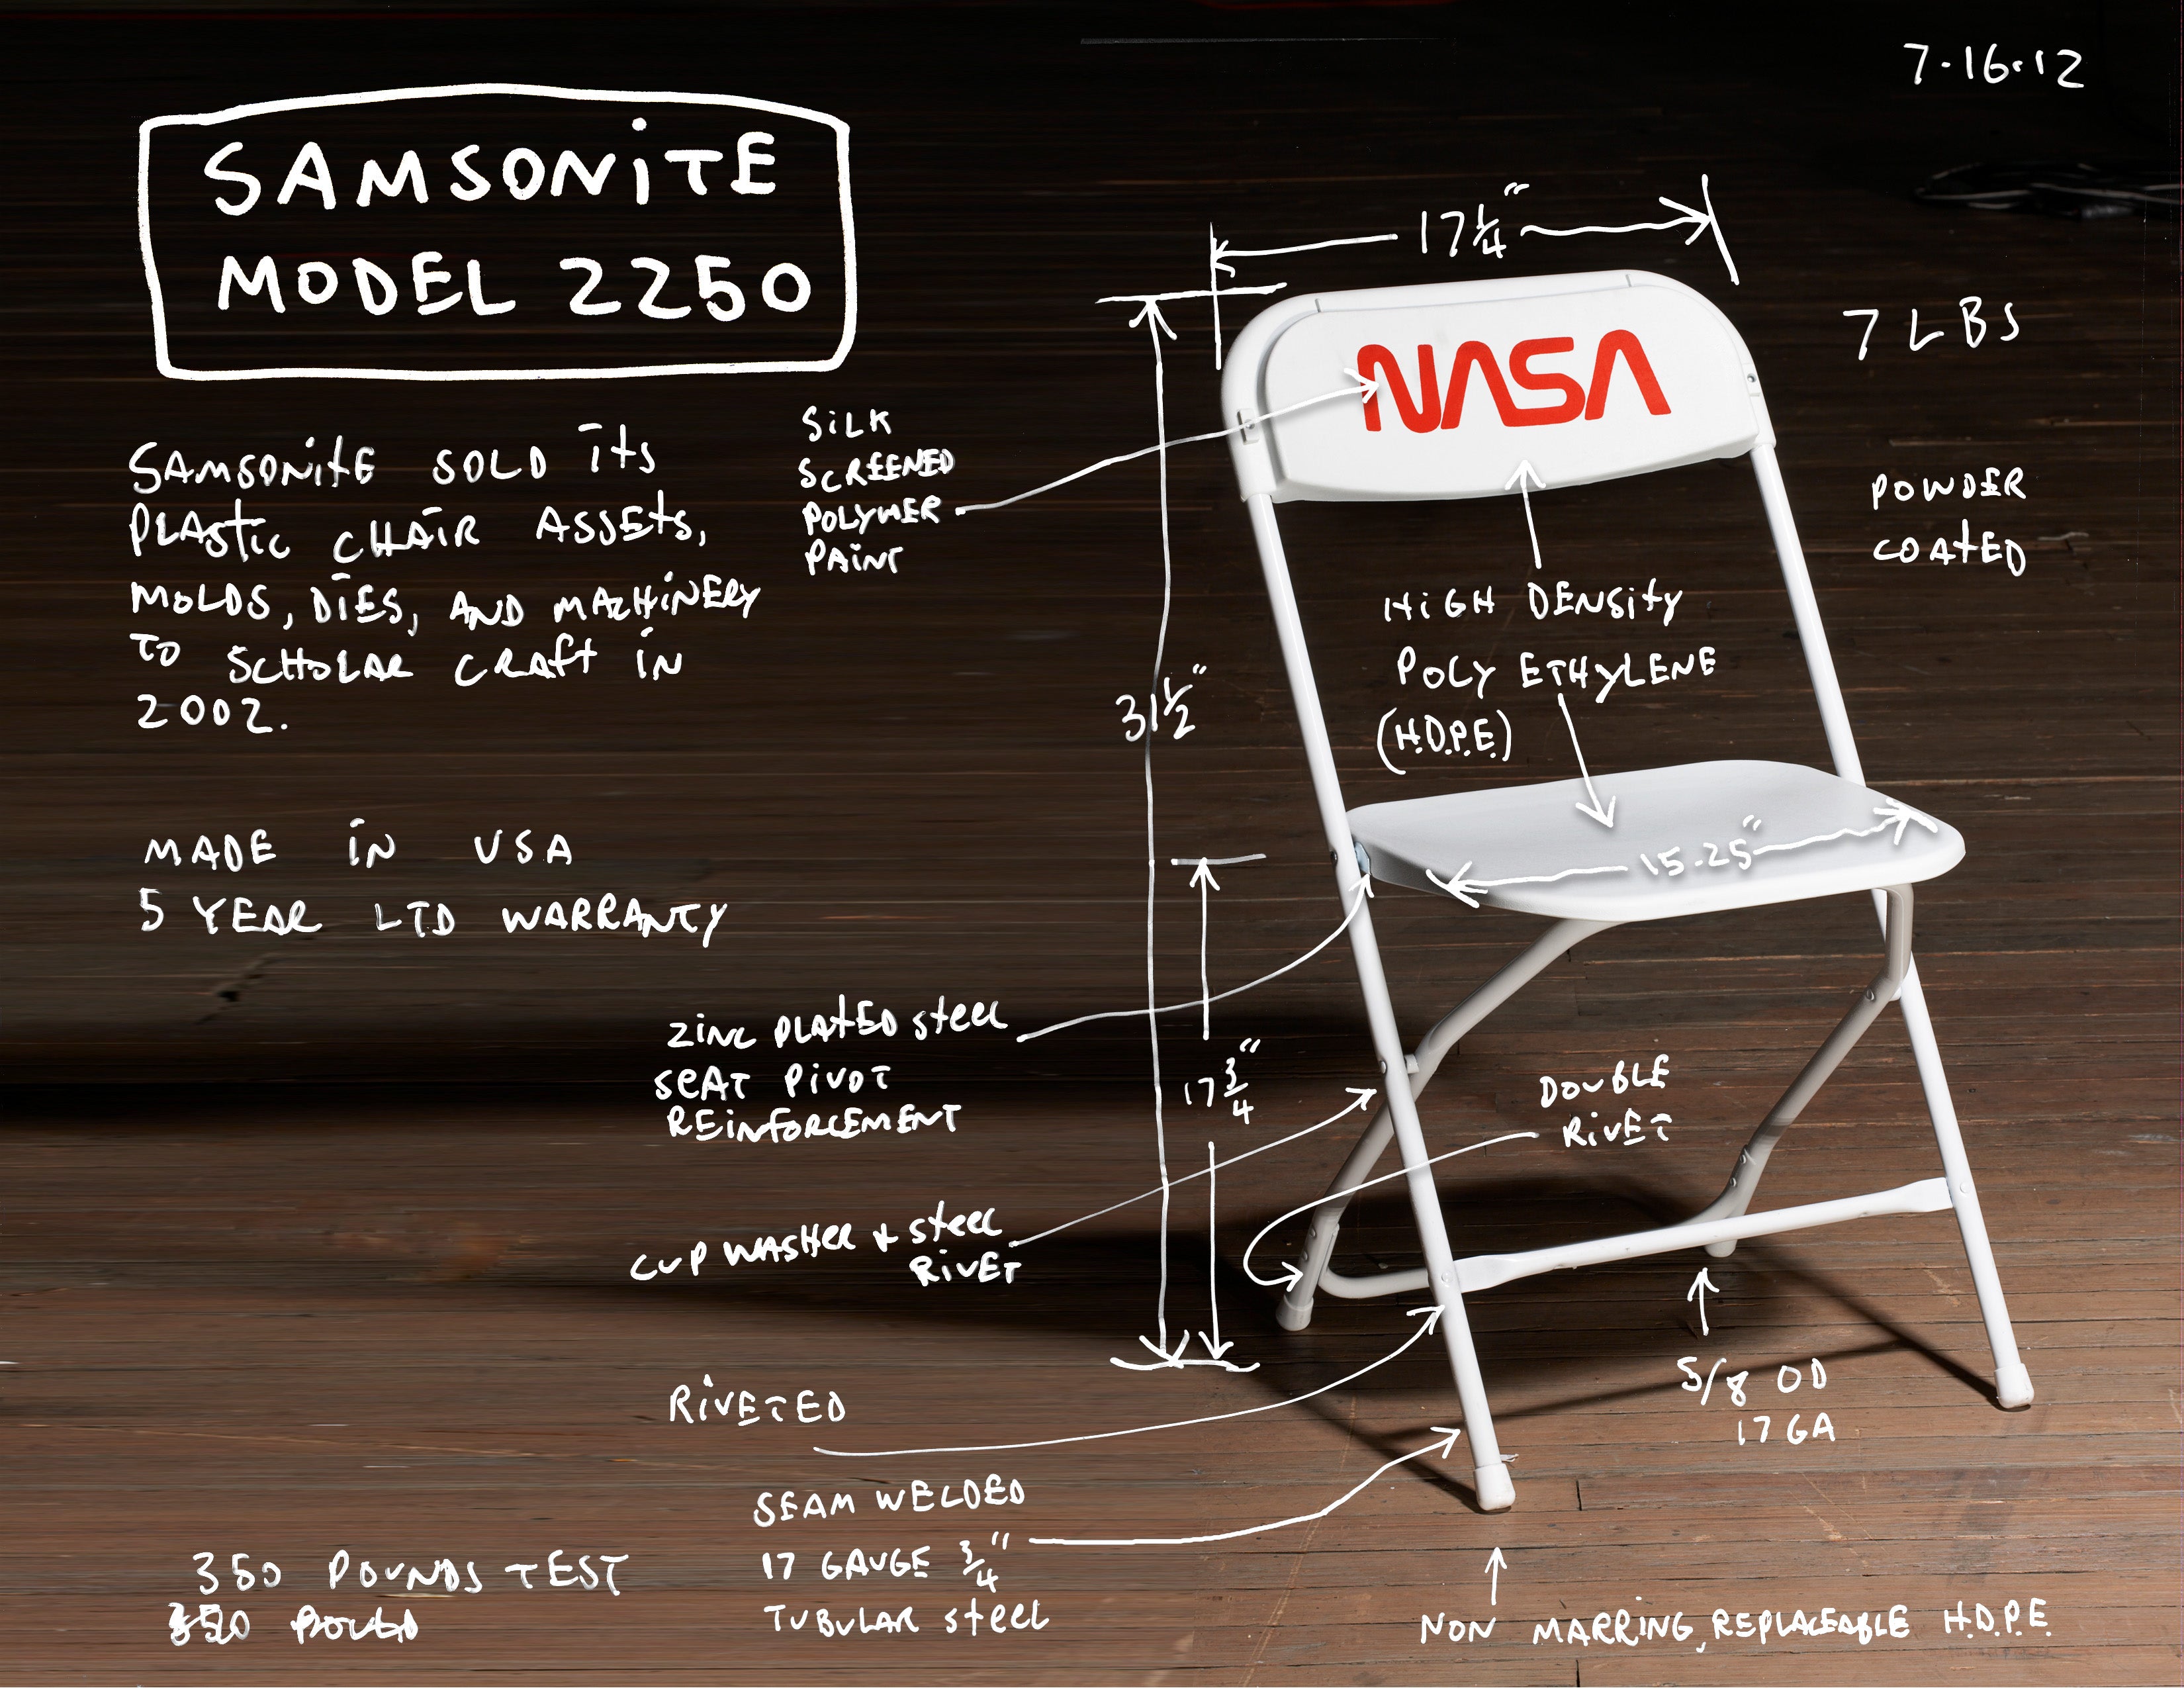 7-16-12
SAMSONiTE
MODEL 2250
17 1/4"
NASA
7 LBS
SAMSONitE SOLD its
PLAStic CHAIR ASSEtS,
MOLDS, DIES, AND MACHINERY
TO SCHOLAR CRAft iN
2002.
SiLK
SCREENED
POLYMER
PAiNT
POWDER
COAtED
HiGH DENSity
POLY ETHYLENE
(H.D.P.E.)
31 1/2"
15.25"
MADE iN USA
5 YEAR LTD WARRANTY
ZiNC PLAtED steel
SEAT PiVOT
REiNfORCEMENT
17 3/4"
DOUBLE
RiVET
CUP WASHER + steel
RiVET
RiVETED
5/8 OD
17 GA
SEAM WELDED
17 GAUGE 3/4"
TUBULAR steel
350 POUNDS TEST
NON MARRING, REPLACEABLE H.D.P.E.